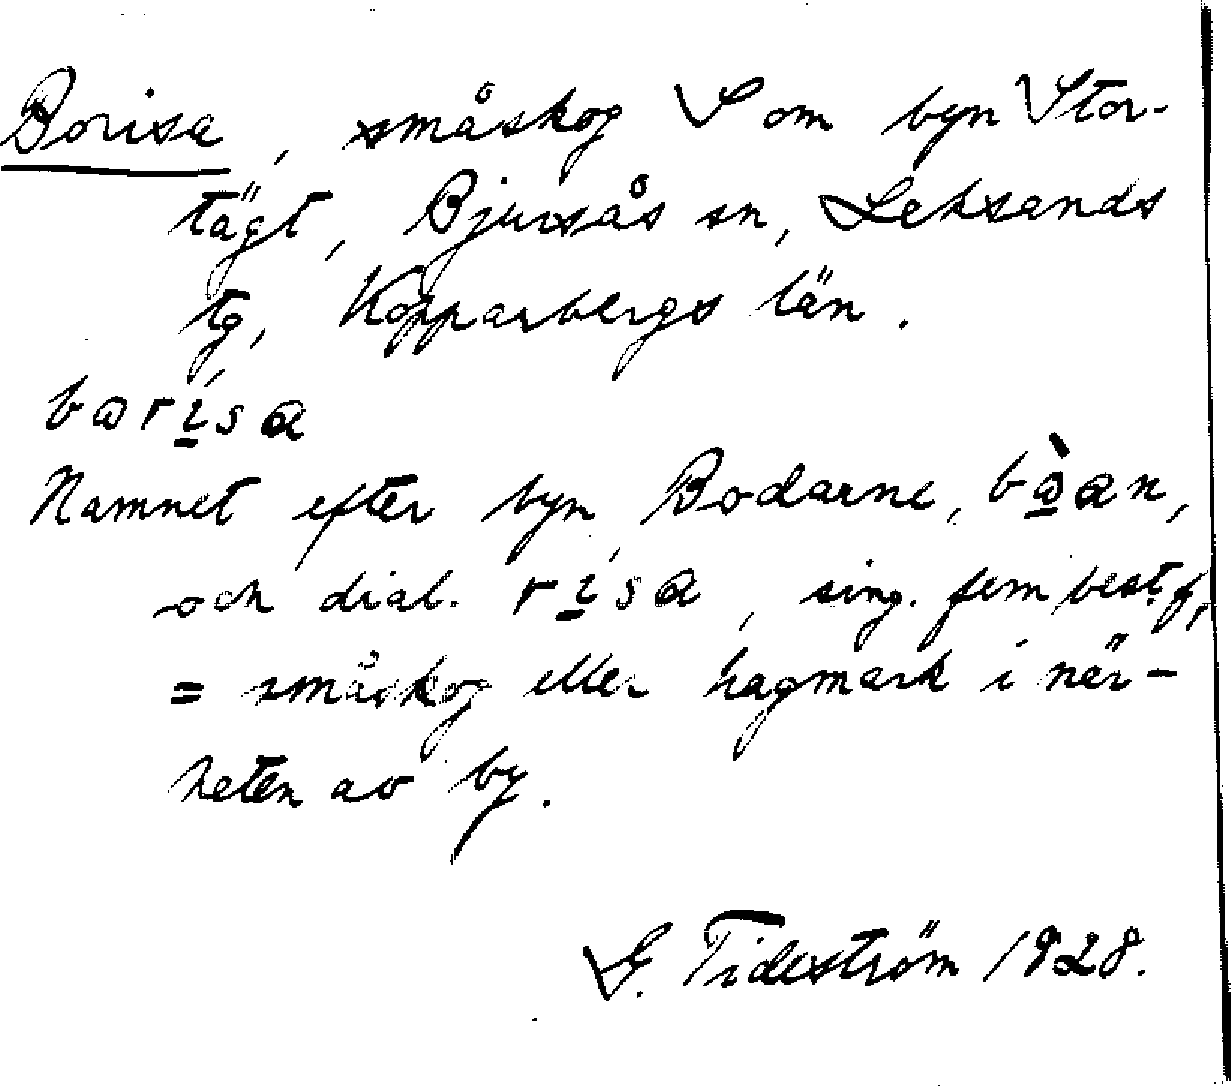 Borisa, småskog S om byn Stor-
tägt, Bjursås sn, Leksands
tg, Kopparbergs län.
barísa
Namnet efter byn Bodarne, bàan,
och dial. rísa, sing. fem best. f,
= småskog eller hagmark i när-
heten av by.
G. Tideström 1928.